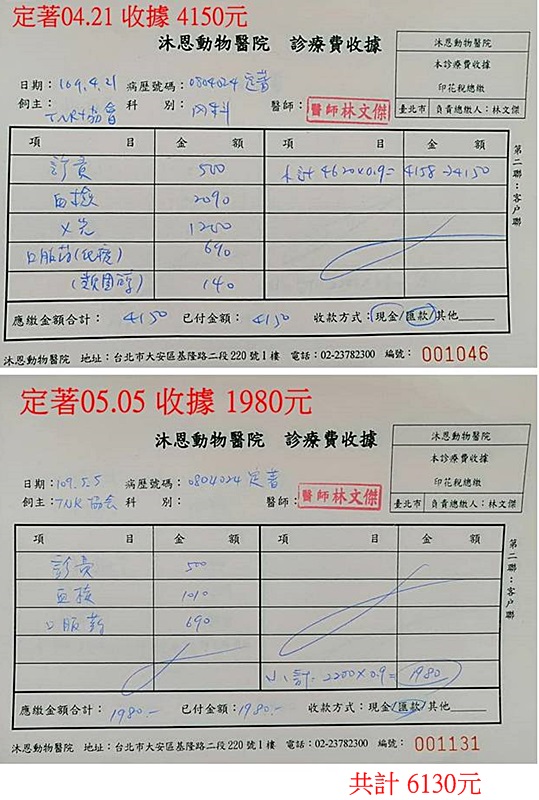 定著04.21 收據 4150元
沐恩動物醫院 診療費收據
沐恩動物醫院
本診療費收據
印花稅總繳
臺北市 負責總繳人：林文傑
日期：109.4.21 病歷號碼：0804024 定著
飼主：TNR協會 科 別：內科 醫師：醫師林文傑
項 目 金 額 項 目 金 額
診費 500 小計 4620x0.9=4158→4150
血檢 2090
X光 1200
口服葯 690
(類固醇) 140
第二聯：客戶聯
應繳金額合計：4150 已付金額：4150 收款方式：現金/匯款/其他
沐恩動物醫院 地址：台北市大安區基隆路二段220號1樓 電話：02-23782300 編號：001046
定著05.05 收據 1980元
沐恩動物醫院 診療費收據
沐恩動物醫院
本診療費收據
印花稅總繳
臺北市 負責總繳人：林文傑
日期：109.5.5 病歷號碼：0804024 定著
飼主：TNR協会 科 別： 醫師：醫師林文傑
項 目 金 額 項 目 金 額
診費 500
血檢 1010
口服葯 690
小計：2200x0.9=1980
第二聯：客戶聯
應繳金額合計：1980.- 已付金額：1980.- 收款方式：現金/匯款/其他
沐恩動物醫院 地址：台北市大安區基隆路二段220號1樓 電話：02-23782300 編號：001131
共計 6130元